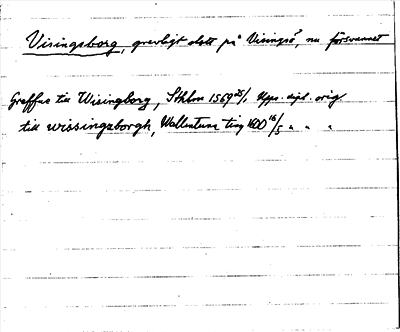 Visingsborg, grevligt slott på Visingsö, nu försvunnet
Greffue till Wisingborg, Sthlm 1569 25/1 Upps. dipl. orig
till wissingzborgh, Wallentuna ting 1600 16/5 " " "